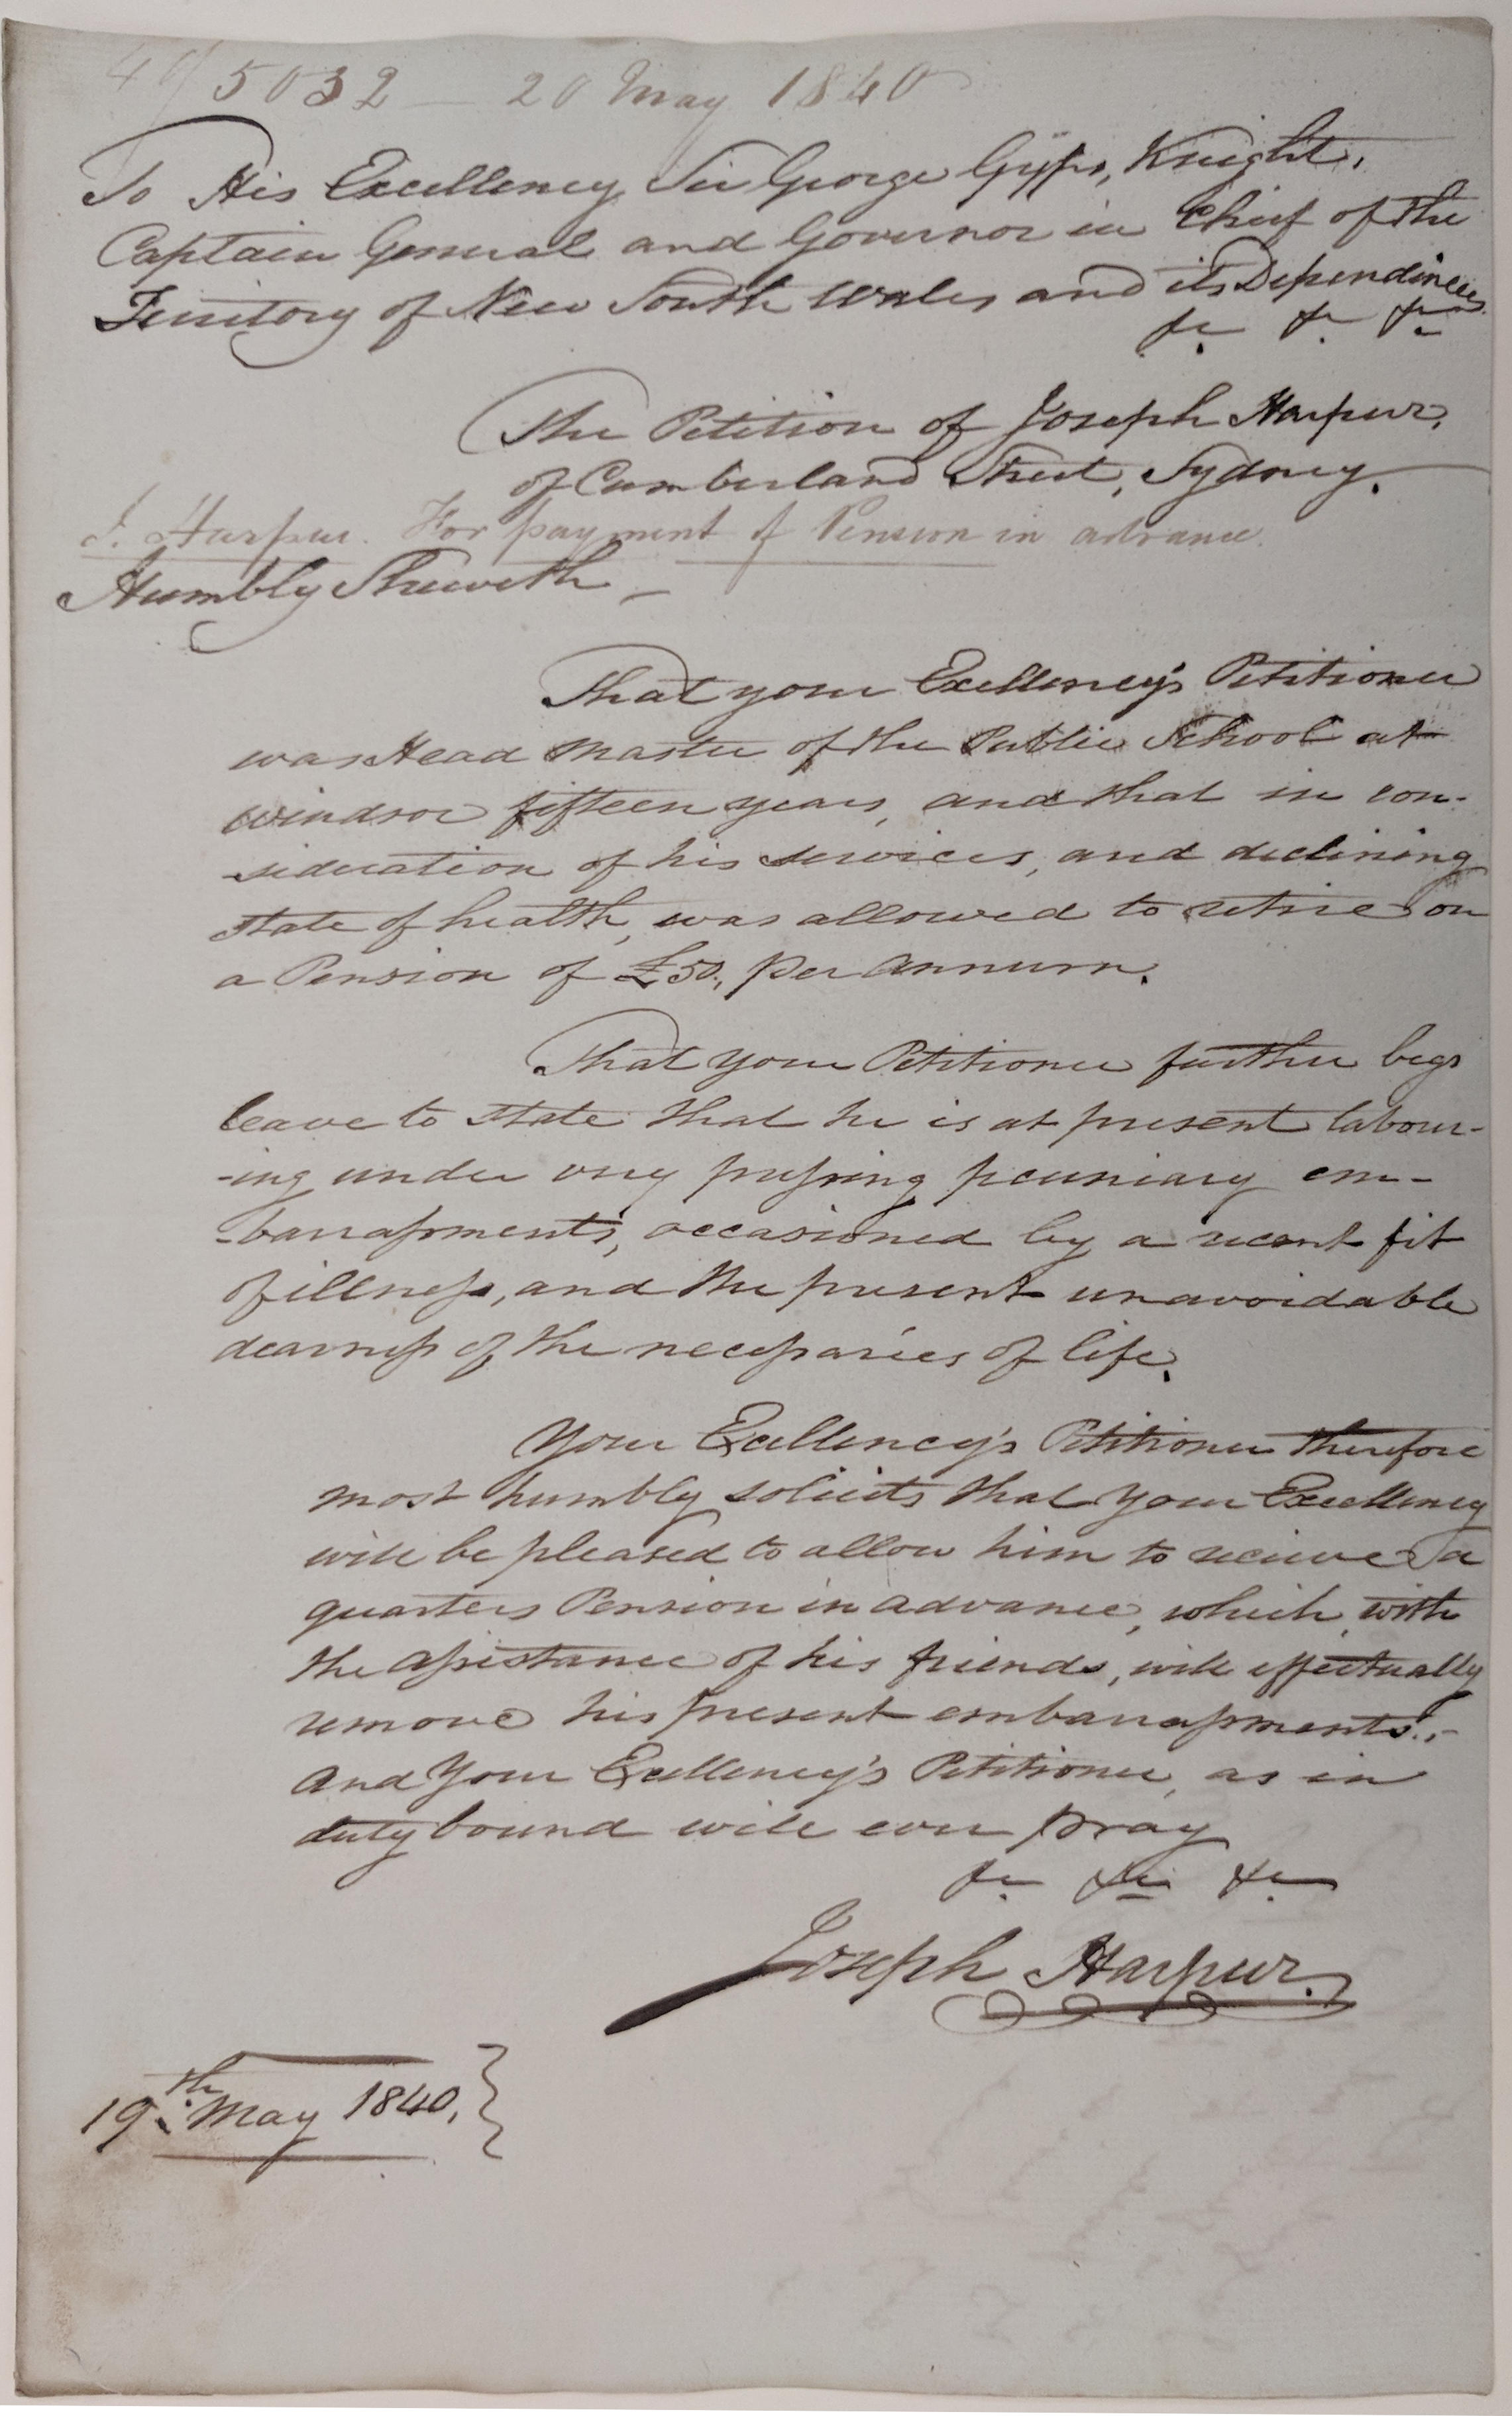 40/5032 — 20 May 1840
To His Excellency Sir George Gipps, Knight,
Captain General and Governor in Chief of the
Territory of New South Wales and its Dependencies
&c &c &c
The Petition of Joseph Harpur,
of Cumberland Street, Sydney.
J. Harpur. For payment of Pension in advance.
Humbly Sheweth —
That your Excellency's Petitioner
was Head Master of the Public School at
Windsor fifteen years, and that in con-
-sideration of his services, and declining
state of health, was allowed to retire on
a Pension of £50, per annum.
That your Petitioner further begs
leave to state that he is at present labour-
-ing under very pressing pecuniary em-
-barrassments, occasioned by a recent fit
of illness, and the present unavoidable
dearness of the necessaries of life.
Your Excellency's Petitioner therefore
most humbly solicits that your Excellency
will be pleased to allow him to receive a
quarters Pension in advance, which, with
the assistance of his friends, will effectually
remove his present embarrassments.,-
And your Excellency's Petitioner, as in
duty bound will ever pray
&c &c &c
Joseph Harpur.
19th May 1840,